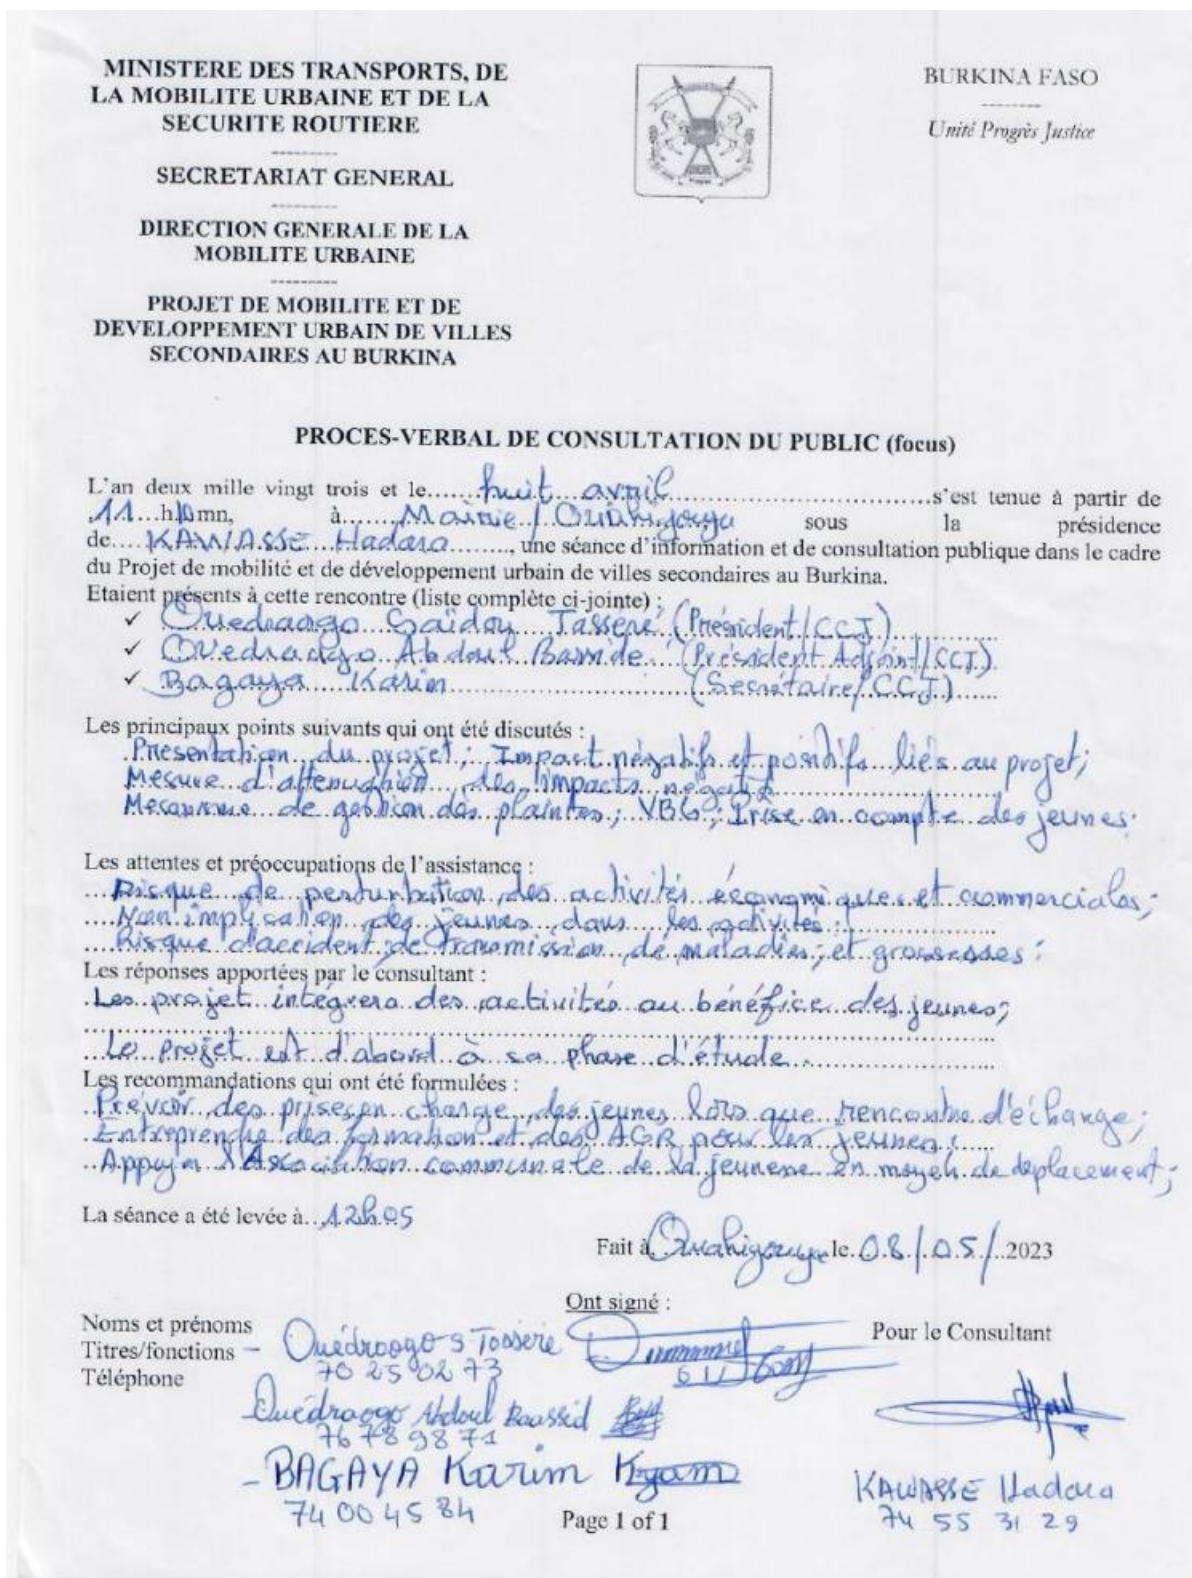 MINISTERE DES TRANSPORTS, DE
LA MOBILITE URBAINE ET DE LA
SECURITE ROUTIERE
----------
SECRETARIAT GENERAL
----------
DIRECTION GENERALE DE LA
MOBILITE URBAINE
----------
PROJET DE MOBILITE ET DE
DEVELOPPEMENT URBAIN DE VILLES
SECONDAIRES AU BURKINA
BURKINA FASO
---------
Unité Progrès Justice
PROCES-VERBAL DE CONSULTATION DU PUBLIC (focus)
L'an deux mille vingt trois et le huit avril s'est tenue à partir de
11 h 10 mn, à Mairie / Ouahigouya sous la présidence
de KAWASSE Hadara, une séance d'information et de consultation publique dans le cadre
du Projet de mobilité et de développement urbain de villes secondaires au Burkina.
Etaient présents à cette rencontre (liste complète ci-jointe) :
✓ Ouedraogo Saïdou Tasseré (Président/CCJ)
✓ Ouedraogo Abdoul Basside (Président Adjoint/CCJ)
✓ Bagaya Karim (Secrétaire/CCJ)
Les principaux points suivants qui ont été discutés :
Présentation du projet; Impact négatifs et positifs liés au projet;
Mesure d'attenuation des impacts négatifs
Mécanisme de gestion des plaintes; VBG; Prise en compte des jeunes.
Les attentes et préoccupations de l'assistance :
Risque de perturbation des activités économiques et commerciales;
Non implication des jeunes dans les activités;
Risque d'accident, de transmission de maladies, et grossesses;
Les réponses apportées par le consultant :
Les projet intégrera des activités au bénéfice des jeunes;
Le projet est d'abord à sa phase d'étude.
Les recommandations qui ont été formulées :
Prévoir des prises en charge des jeunes lors que rencontre d'échange;
Entreprendre des formation et des AGR pour les jeunes;
Appuyer l'Association communale de la jeunesse en moyen de deplacement;
La séance a été levée à 12h05
Fait à Ouahigouya le 08/05/2023
Ont signé :
Noms et prénoms
Titres/fonctions
Téléphone
Pour le Consultant
- Ouédraogo S Tasseré
70 25 02 73
Ouédraogo Abdoul Baassid
76 78 98 71
- BAGAYA Karim
74 00 45 84
KAWASSE Hadara
74 55 31 29
Page 1 of 1